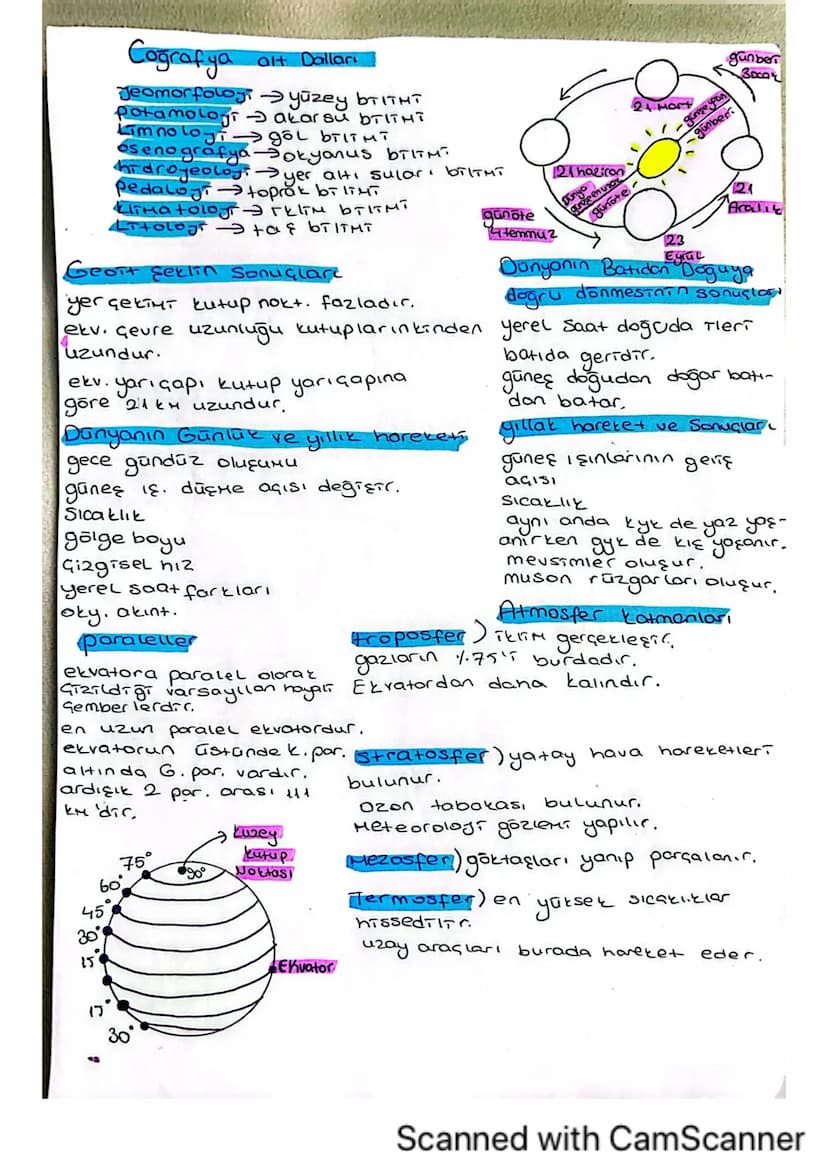 Coğrafya alt Dalları
Jeomorfoloji → yüzey bilimi
potamoloji → akarsu bilimi
Limnoloji → göl bilimi
osenografya → okyanus bilimi
hidroyeoloji → yer altı suları bilimi
pedaloji → toprak bilimi
klimatoloji → iklim bilimi
Litoloji → taş bilimi
günberi
3 ocak
21 Mart
günberi
21 haziran
günöte
21
Aralık
günöte
4 temmuz
23
Eylül
Geoit Şeklin Sonuçları
yer çekimi kutup nokt. fazladır.
ekv. çevre uzunluğu kutuplarınkinden
uzundur.
ekv. yarıçapı kutup yarıçapına
göre 21 km uzundur.
Dünyanın Günlük ve yıllık hareketi
gece gündüz oluşumu
güneş ış. düşme açısı değişir.
Sıcaklık
gölge boyu
Çizgisel hız
yerel saat farkları
oky. akınt.
Dünyanın Batıdan Doğuya
doğru dönmesinin sonuçları
yerel saat doğuda ileri
batıda geridir.
güneş doğudan doğar batı-
dan batar.
yıllık hareket ve Sonuçları
güneş ışınlarının geriş
açısı
sıcaklık
aynı anda kyk de yaz yaş-
anırken gyk de kış yaşanır.
mevsimler oluşur.
muson rüzgarları oluşur.
paraleller
ekvatora paralel olarak
Çizildiği varsayılan hayali
Çemberlerdir.
en uzun paralel ekvatordur.
ekvatorun üstünde k. par.
altında G. par. vardır.
ardışık 2 par. arası 111
km'dir.
Kuzey
kutup
Noktası
90°
75°
60°
45°
30°
15°
Ekvator
17°
30°
Atmosfer katmanları
troposfer) iklim gerçekleşir.
gazların %75'i burdadır.
Ekvatordan daha kalındır.
Stratosfer) yatay hava hareketleri
bulunur.
ozon tabakası bulunur.
Meteoroloji gözlemi yapılır.
Mezosfer) göktaşları yanıp parçalanır.
Termosfer) en yüksek sıcaklıklar
hissedilir.
uzay araçları burada hareket eder.
Scanned with CamScanner